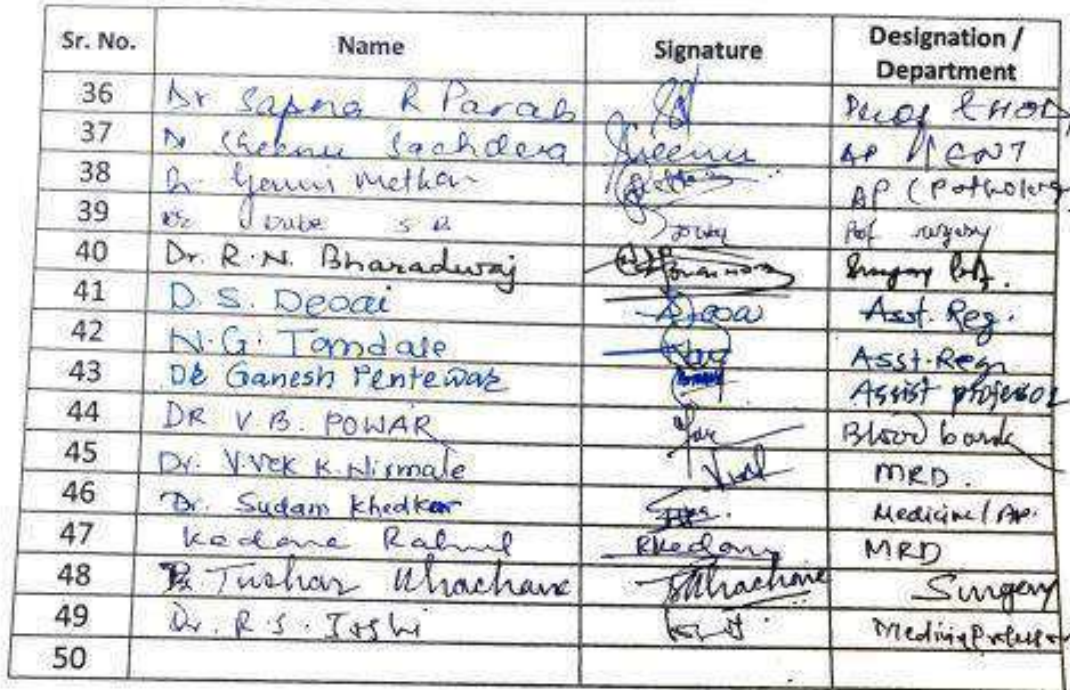 Sr. No. Name Signature Designation / Department
36 Dr Sapna R Parab Prof & HOD
37 Dr Sheenu Sachdeva Sheenu AP ENT
38 Dr. Metkari AP (Pathology
39 Dr Dube S B Prof surgery
40 Dr. R.N. Bharadwaj Surgery
41 D. S. Desai Asst. Reg.
42 N.G. Tamdale Asst. Regr
43 DR Ganesh Pentewar Assist professor
44 DR V.B. POWAR Blood bank
45 Dr. Vivek K. Nirmale MRD.
46 Dr. Sudam Khedkar Medicine / AP.
47 Kadane Rahul RKadam MRD
48 Dr Tushar Khachane TKhachane Surgery
49 Dr. R.S. Joshi Medicine Professor
50